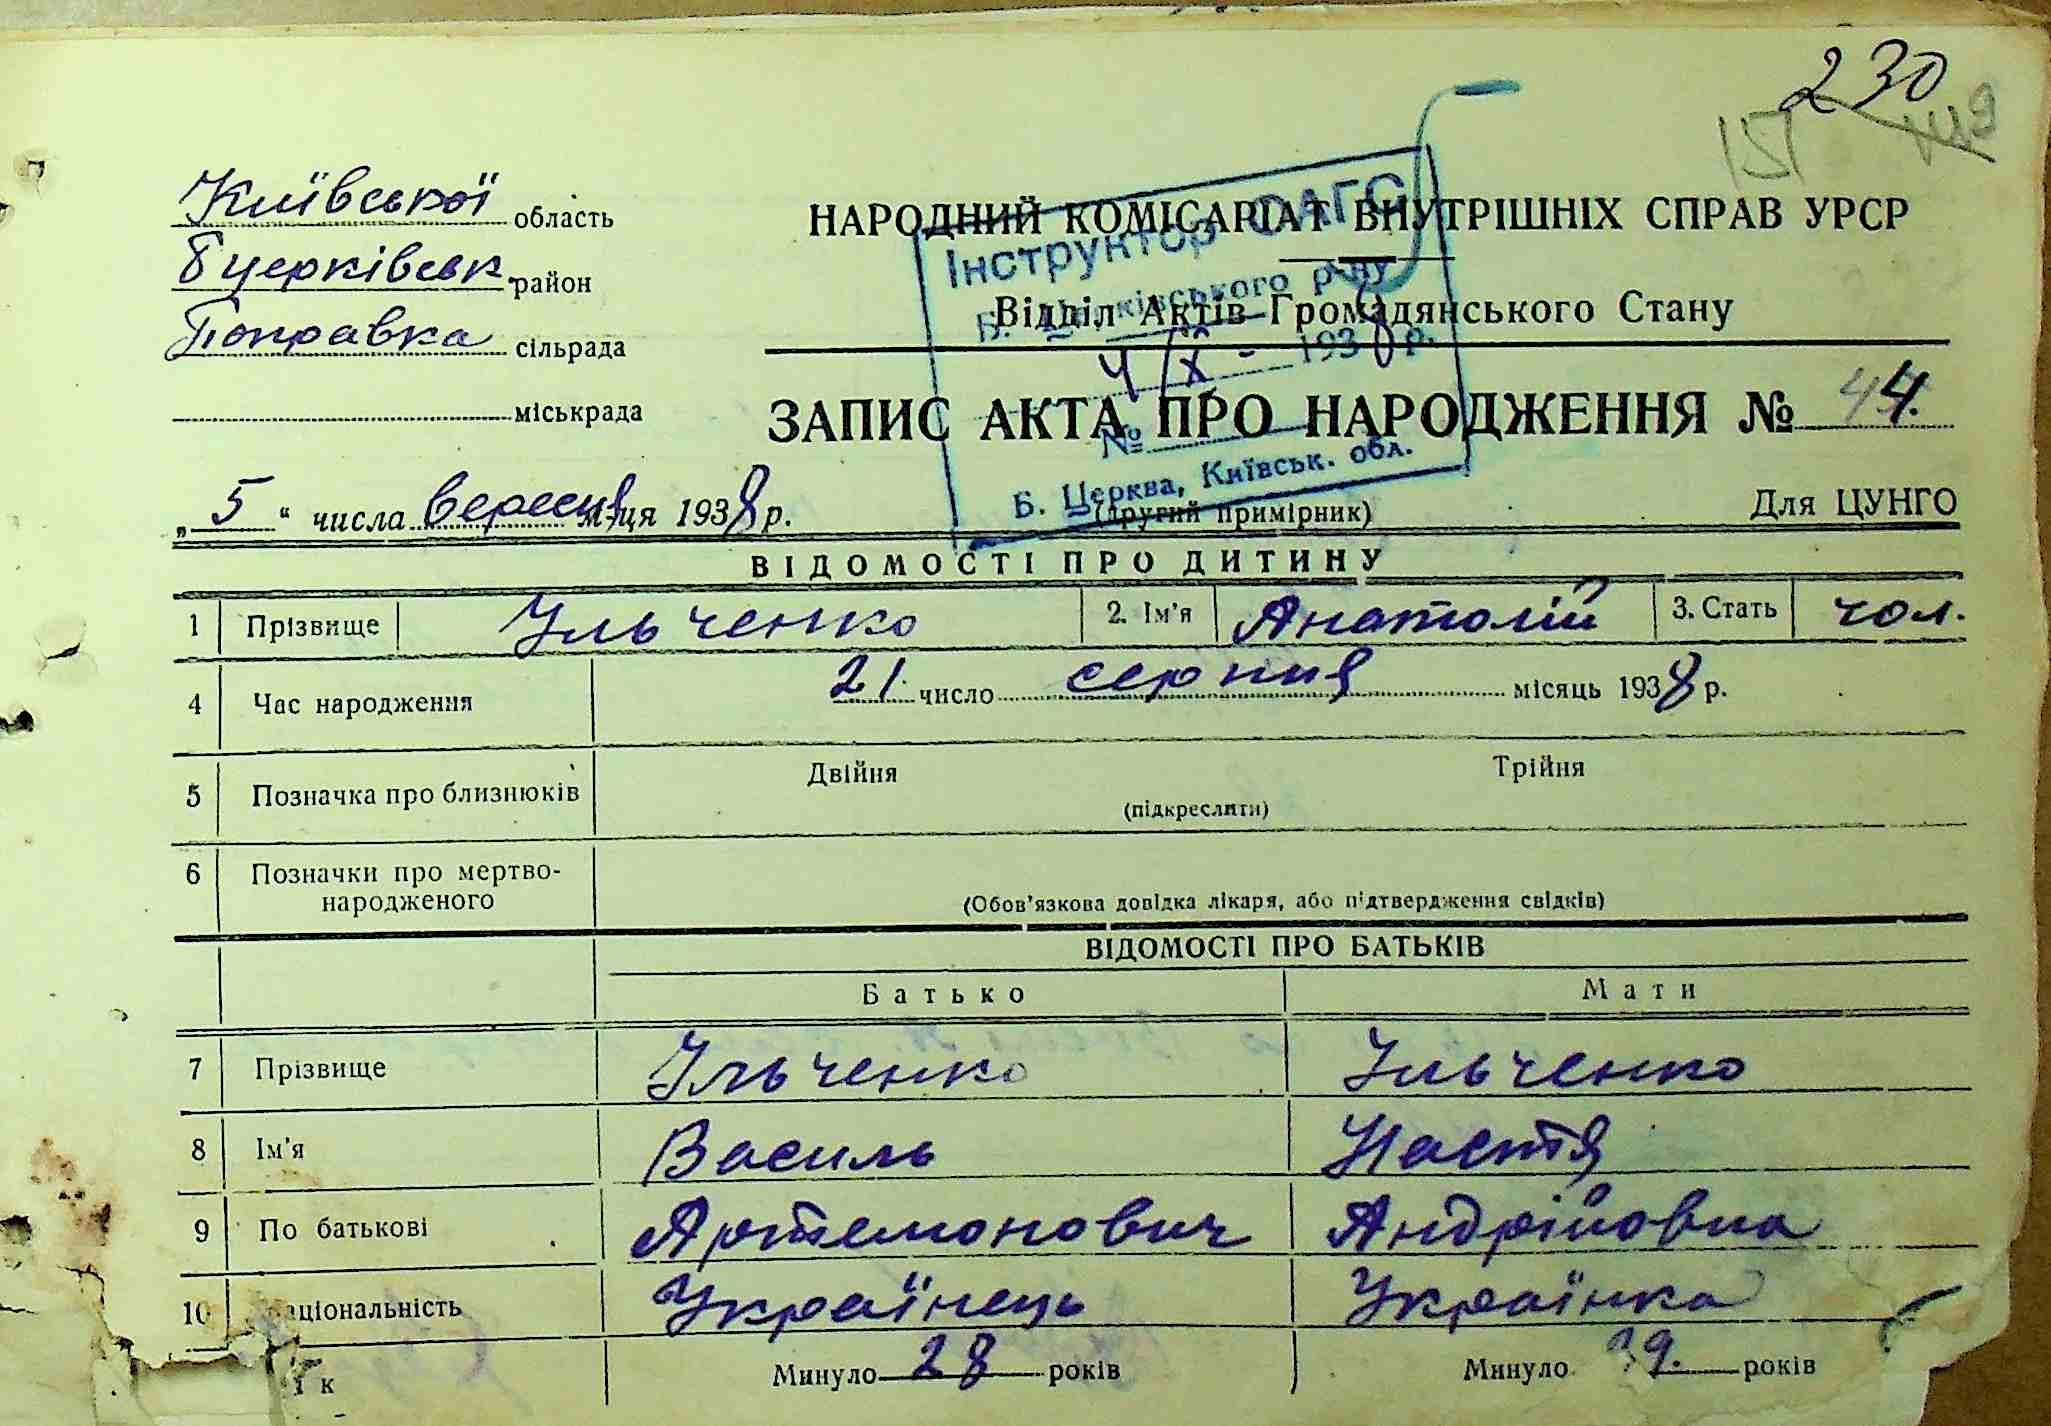 230
151
Київської область
Бцерківськ. район
Поправка сільрада
міськрада
НАРОДНИЙ КОМІСАРІАТ ВНУТРІШНІХ СПРАВ УРСР
Відділ Актів Громадянського Стану
Інструктор ФАГС
Б. Церківського р-ну
4/ІХ - 1938 р.
№
Б. Церква, Київськ. обл.
ЗАПИС АКТА ПРО НАРОДЖЕННЯ № 44.
„5“ числа вересня м-ця 1938 р.
(другий примірник)
Для ЦУНГО
ВІДОМОСТІ ПРО ДИТИНУ
1 Прізвище Ульченко 2. Ім'я Анатолій 3. Стать чол.
4 Час народження 21. число серпня місяць 1938 р.
5 Позначка про близнюків Двійня Трійня
(підкреслити)
6 Позначки про мертво-
народженого
(Обов'язкова довідка лікаря, або підтвердження свідків)
ВІДОМОСТІ ПРО БАТЬКІВ
Батько Мати
7 Прізвище Ульченко Ульченко
8 Ім'я Василь Настя
9 По батькові Артемонович Андрійовна
10 аціональність Українець Українка
і к Минуло 28 років Минуло 39. років